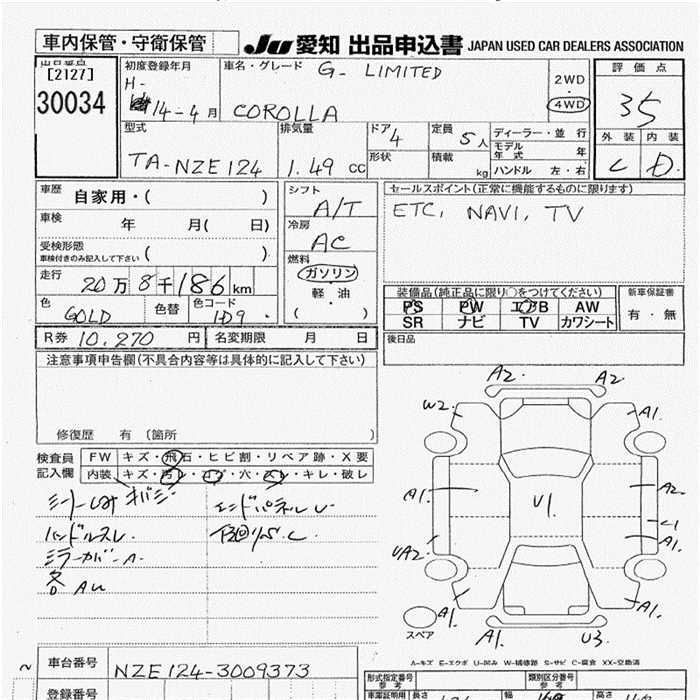 車内保管・守衛保管
JU 愛知 出品申込書 JAPAN USED CAR DEALERS ASSOCIATION
出品番号
[2127]
30034
初度登録年月
H-
14-4月
車名・グレード G- LIMITED
COROLLA
2WD
・
4WD
評価点
35
外装 内装
C D
型式
TA-NZE124
排気量
1.49 cc
ドア 4
形状
定員 5人
積載 kg
ディーラー・並行
モデル年式 年
ハンドル 左・右
車歴
自家用・( )
車検
年 月( 日)
受検形態
車検付きのみ記入して下さい ( )
走行
20万8千186km
色
GOLD
色替
色コード
1D9.
シフト
A/T
冷房
AC
燃料
ガソリン
軽・油
( )
セールスポイント(正常に機能するものに限ります)
ETC, NAVI, TV
装備品(純正品に限り○をつけてください)
PS PW エアB AW
SR ナビ TV カワシート
新車保証書
有・無
R券 10,270円
名変期限 月 日
後日品
注意事項申告欄(不具合内容等は具体的に記入して下さい)
修復歴 有 (箇所 )
検査員
記入欄
FW キズ・飛石・ヒビ割・リペア跡・X要
内装 キズ・汚レ・コゲ・穴・スレ・キレ・破レ
ハンドルスレ
エンドパネルU
ミラーカバーA
各 AU
下回りS.C
A2. A2
W2. A1.
A1. A2
U1.
C1
UA2 A1.
A1. A1.
A1. U3.
スペア
A-キズ E-エクボ U-凹み W-補修跡 S-サビ C-腐食 XX-交換済
車台番号
NZE124-3009373
登録番号
形式指定番号
参考
類別区分番号
参考
車庫証明用
長さ
幅
高さ